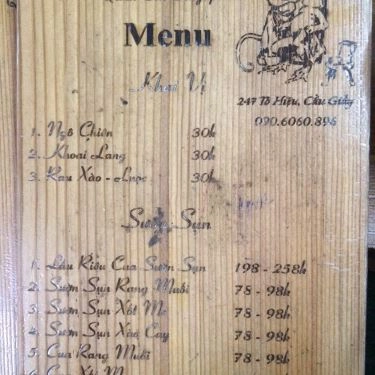 Menu
Khai Vị
247 Tô Hiệu, Cầu Giấy
090.6060.896
1. Ngô Chiên 30k
2. Khoai Lang 30k
3. Rau Xào - Luộc 30k
Sườn Sụn
1. Lẩu Riêu Cua Sườn Sụn 198 - 258k
2. Sườn Sụn Rang Muối 78 - 98k
3. Sườn Sụn Xốt Me 78 - 98k
4. Sườn Sụn Xào Cay 78 - 98k
5. Cua Rang Muối 78 - 98k